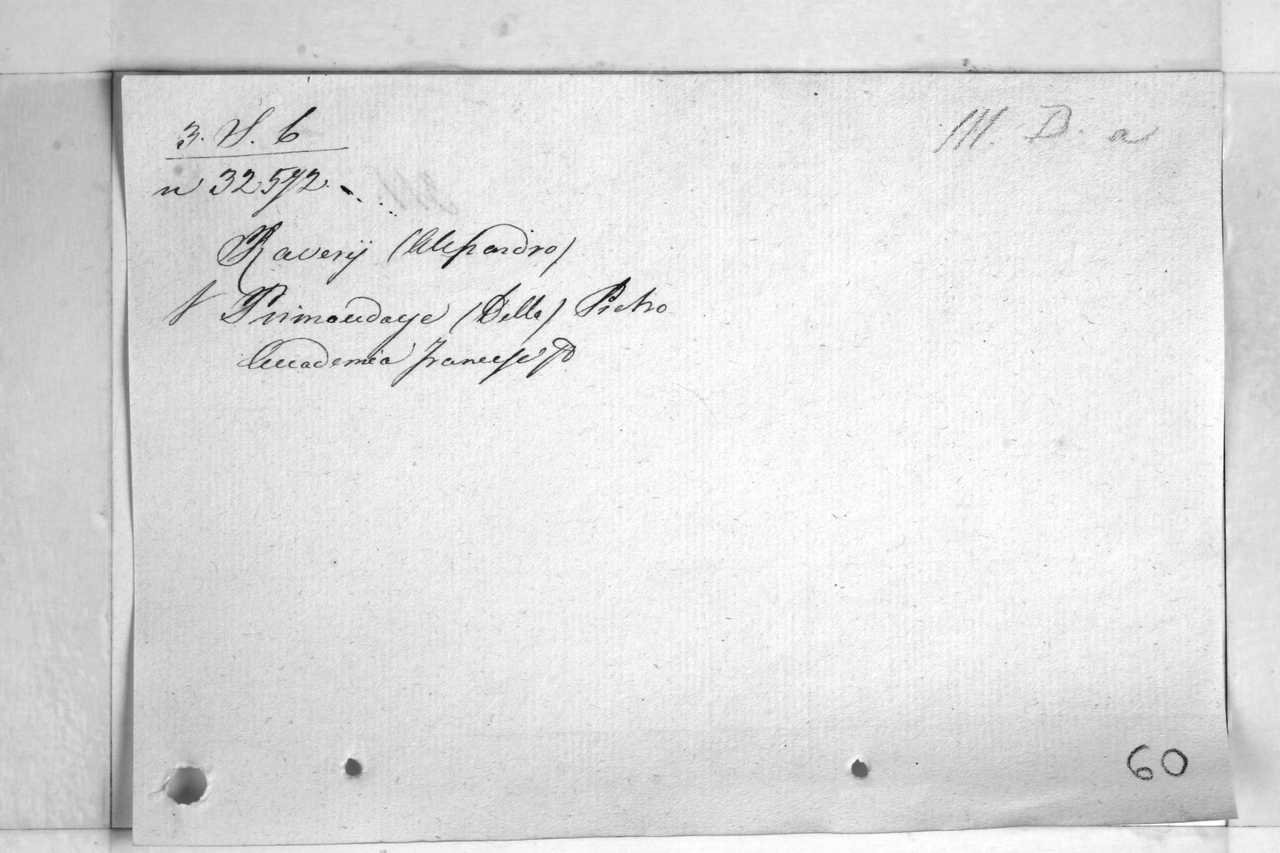 3. S. 6
M. D. a
n 32572.
Raverij (Alessandro)
Primaudaye (Della) Pietro
Accademia francese
60